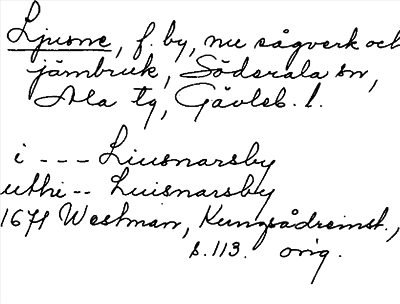 Ljusne, f. by, nu sågverk och
järnbruk, Söderala sn,
Ala tg, Gävleb. l.
i --- Liusnarsby
uthi -- Luisnarsby
1671 Westman, Kungsådreinst.,
s. 113. orig.